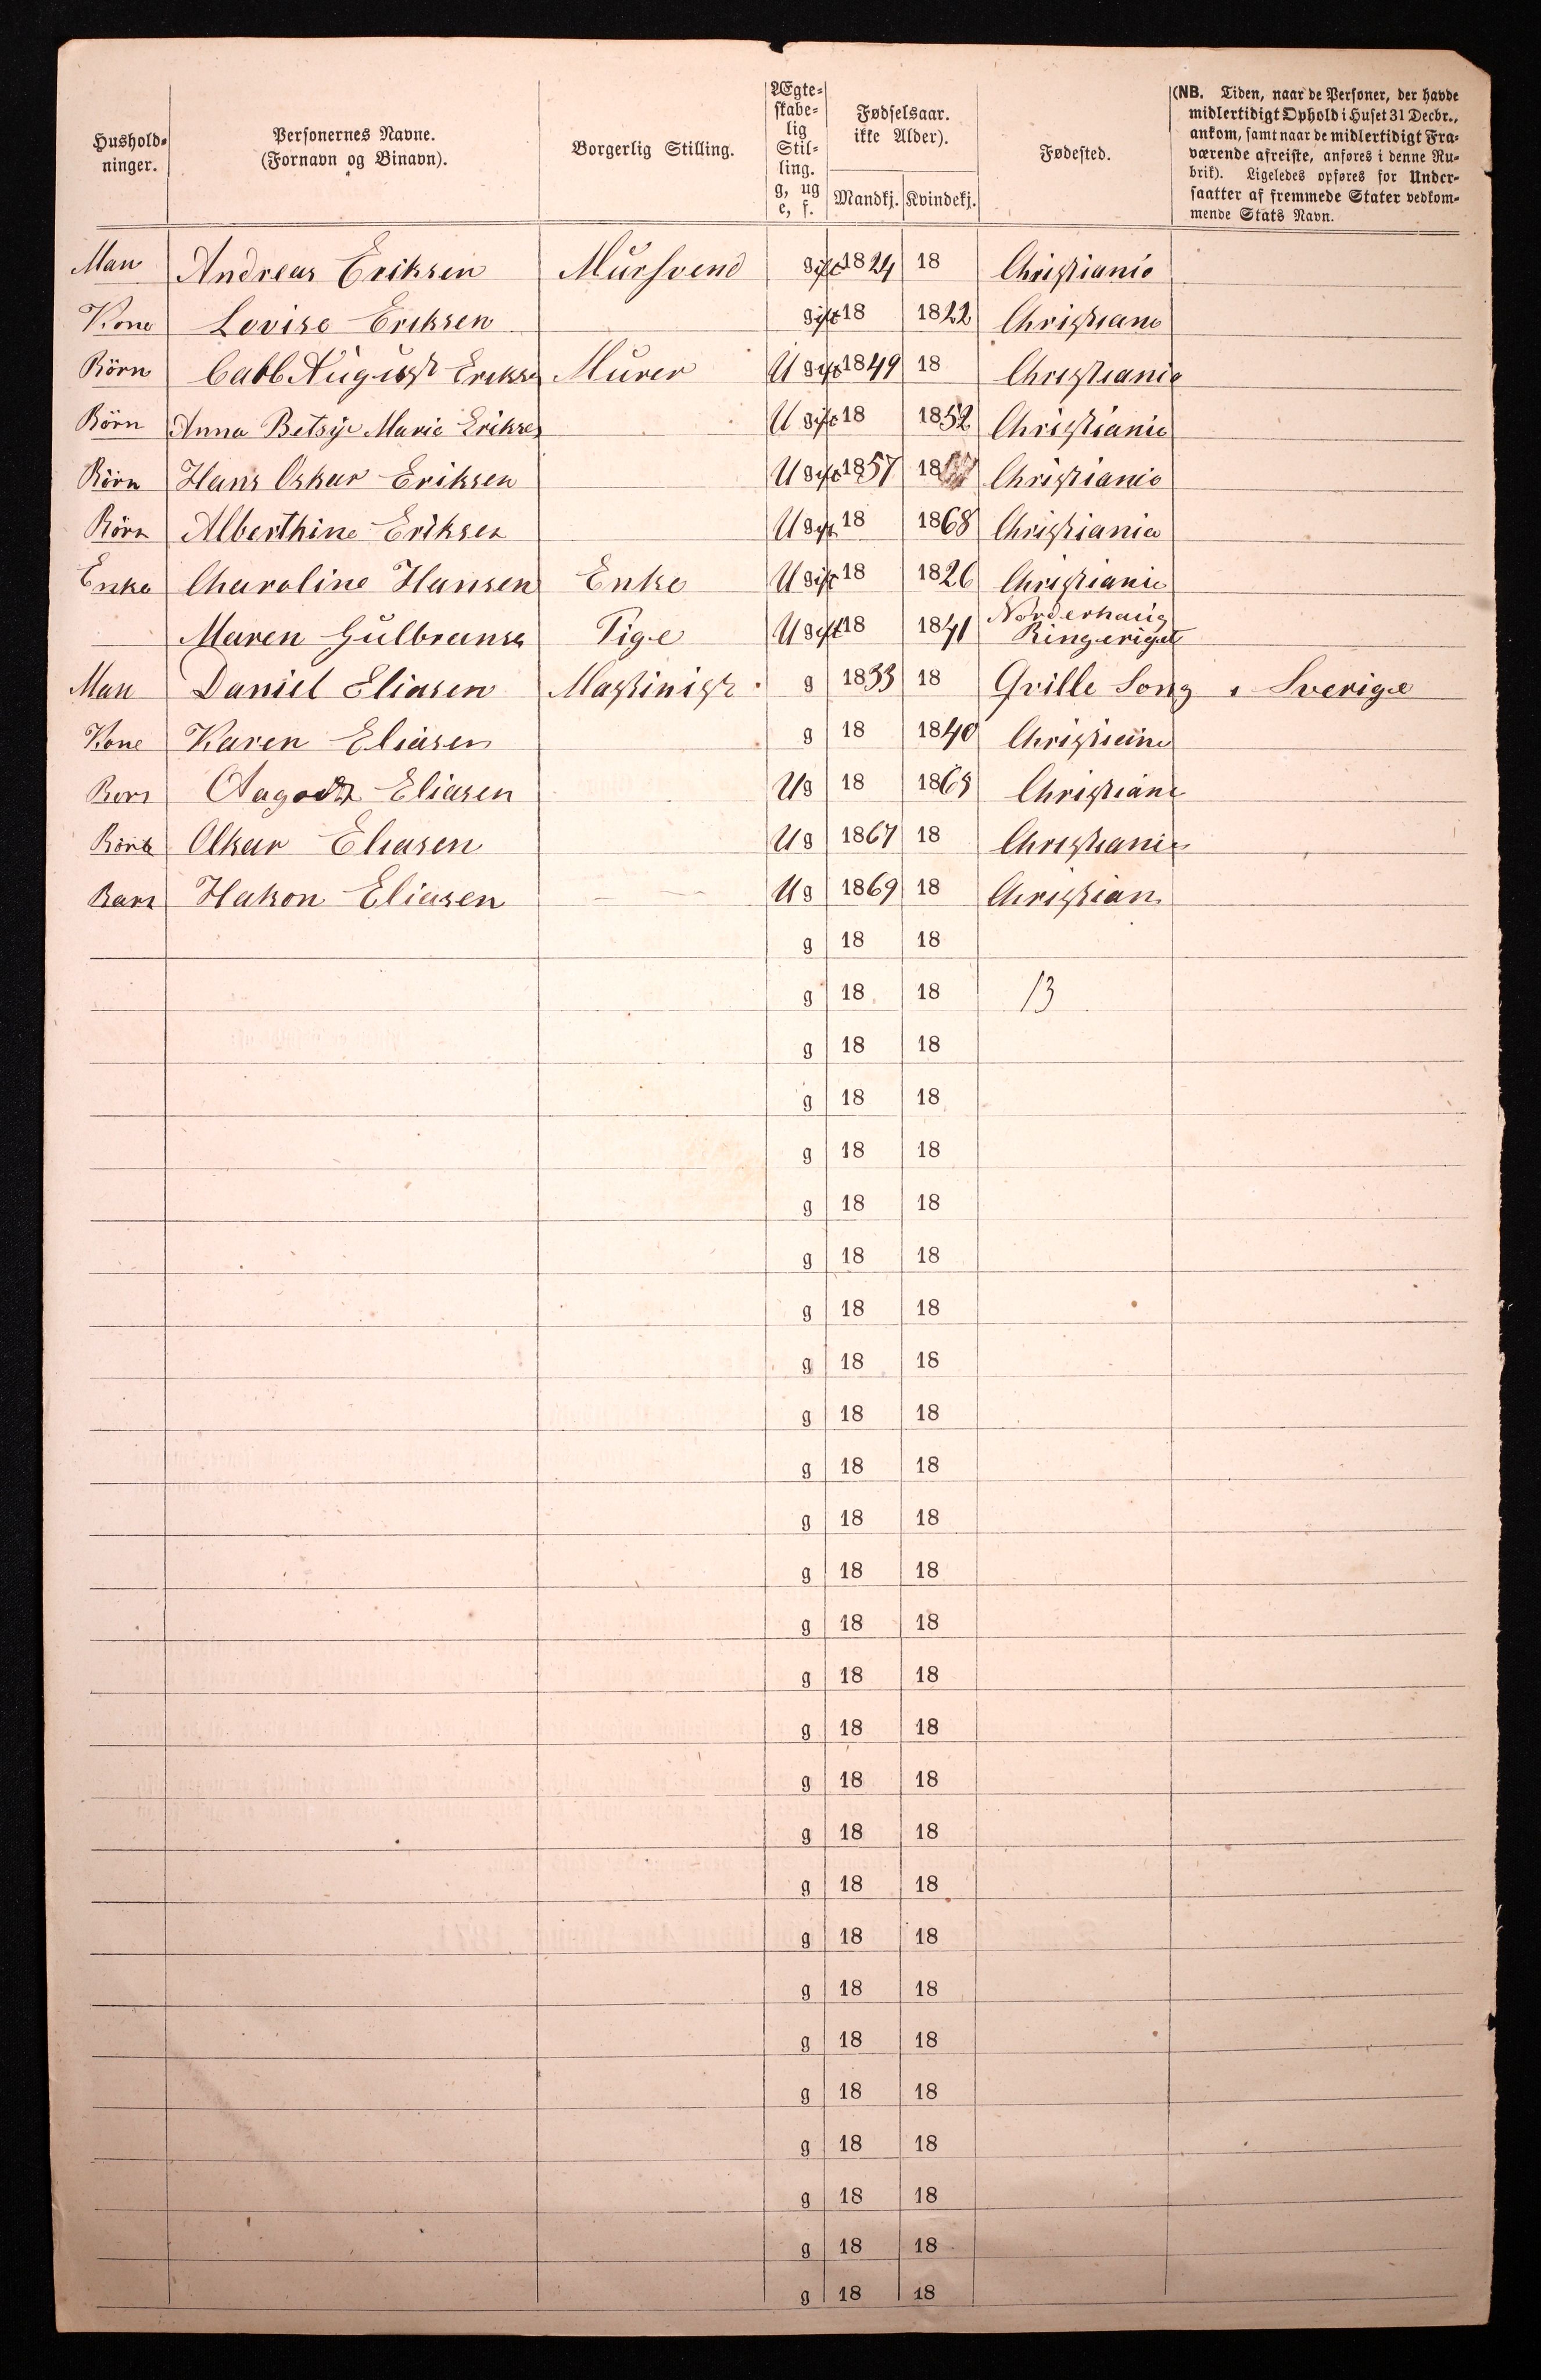 Hushold-
ninger.
Personernes Navne.
(Fornavn og Binavn).
Borgerlig Stilling.
Ægte-
skabe-
lig
Stil-
ling.
g, ug
e, f.
Fødselsaar.
ikke Alder).
Mandkj. Kvindekj.
Fødested.
(NB. Tiden, naar de Personer, der havde
midlertidigt Ophold i Huset 31 Decbr.,
ankom, samt naar de midlertidigt Fra-
værende afreiste, anføres i denne Ru-
brik). Ligeledes opføres for Under-
saatter af fremmede Stater vedkom-
mende Stats Navn.
Man Andreas Eriksen Mursvend gift 1824 18 Christiania
Kone Lovise Eriksen gift 18 1822 Christiana
Börn August Erikse Murer U gift 1849 18 Christiania
Börn Anna Betsye Marie Eriksen U gift 18 1852 Christiania
Börn Hans Oskar Eriksen U gift 1857 18 Christiania
Börn Alberthine Eriksen U gift 18 1868 Christiania
Enke Charoline Hansen Enke U gift 18 1826 Christiania
Maren Gulbransen Pige U gift 18 1841 Norderhaug
Ringeriget
Man Daniel Eliasen Maskinist g 1833 18 Grille Song i Sverige
Kone Karen Eliasen g 18 1840 Christiania
Börn Eliasen Ug 18 1865 Christiania
Börn Oskar Eliasen Ug 1867 18 Christiania
Barn Hakon Eliasen Ug 1869 18 Christian
g 18 18
g 18 18 13
g 18 18
g 18 18
g 18 18
g 18 18
g 18 18
g 18 18
g 18 18
g 18 18
g 18 18
g 18 18
g 18 18
g 18 18
g 18 18
g 18 18
g 18 18
g 18 18
g 18 18
g 18 18
g 18 18
g 18 18
g 18 18
g 18 18
g 18 18
g 18 18
g 18 18